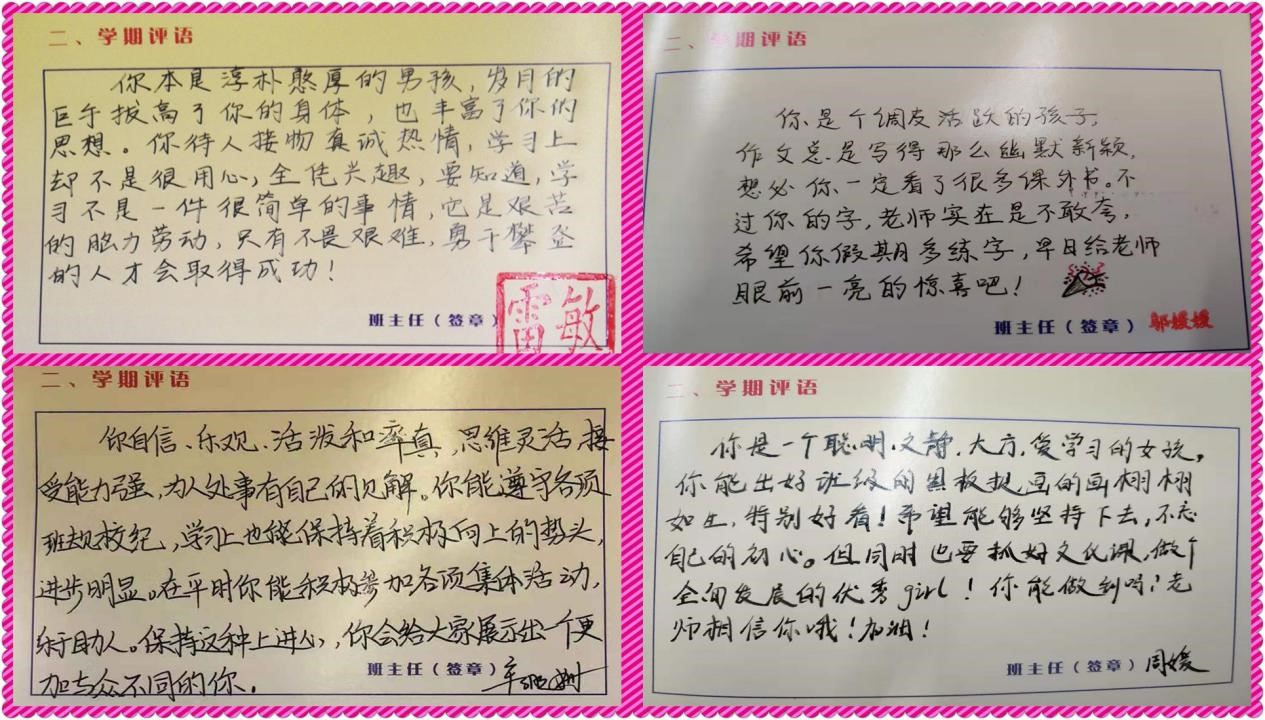 二、学期评语
你本是淳朴憨厚的男孩，岁月的
巨手拔高了你的身体，也丰富了你的
思想。你待人接物真诚热情，学习上
却不是很用心，全凭兴趣，要知道，学
习不是一件很简单的事情，它是艰苦
的脑力劳动，只有不畏艰难，勇于攀登
的人才会取得成功！
班主任（签章）
雷敏
二、学期评语
你是个调皮活跃的孩子，
作文总是写得那么幽默新颖，
想必你一定看了很多课外书。不
过你的字，老师实在是不敢夸，
希望你假期多练字，早日给老师
眼前一亮的惊喜吧！
班主任（签章）邬媛媛
二、学期评语
你自信、乐观、活泼和率真，思维灵活，接
受能力强，为人处事有自己的见解。你能遵守各项
班规校纪，学习上也能保持着积极向上的势头，
进步明显。在平时你能积极参加各项集体活动，
乐于助人。保持这种上进心，你会给大家展示出一个更
加与众不同的你。
班主任（签章）
二、学期评语
你是一个聪明、文静、大方、爱学习的女孩。
你能出好班级的黑板报，画的画栩栩
如生，特别好看！希望能够坚持下去，不忘
自己的初心。但同时也要抓好文化课，做个
全面发展的优秀girl！你能做到吗？老
师相信你哦！加油！
班主任（签章）周媛